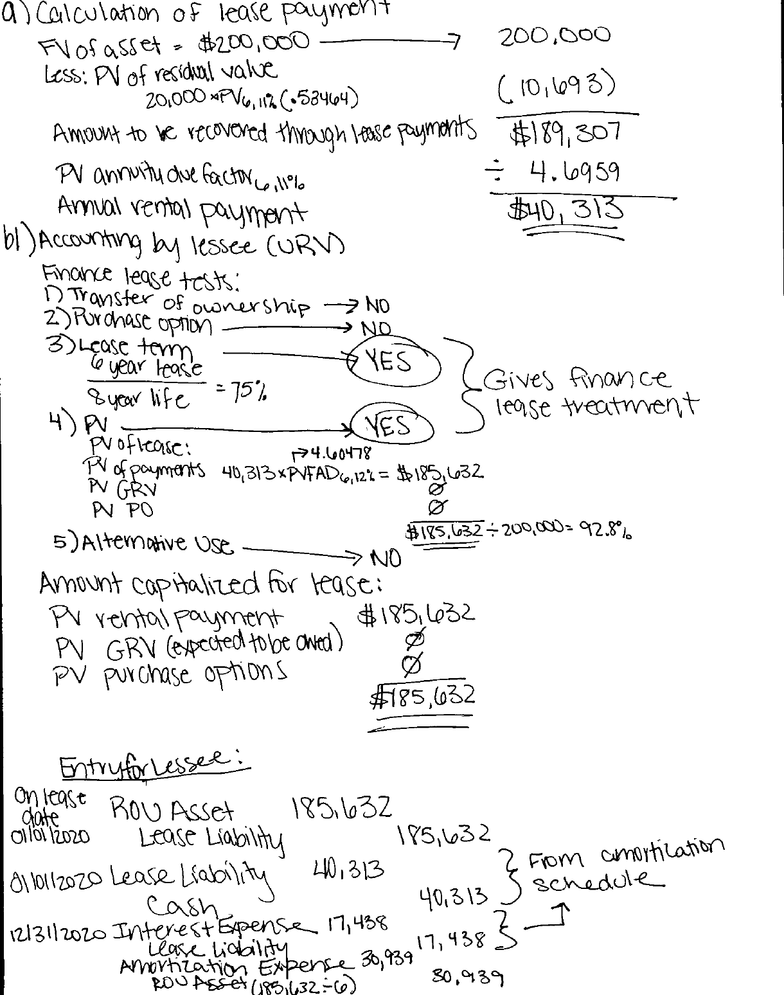 a) Calculation of lease payment
FV of asset = $200,000 → 200,000
Less: PV of residual value
20,000 × PV6,11% (.53464) (10,693)
Amount to be recovered through lease payments $189,307
PV annuity due factor6,11% ÷ 4.6959
Annual rental payment $40,313
b1) Accounting by lessee (URV)
Finance lease tests:
1) Transfer of ownership → NO
2) Purchase option → NO
3) Lease term → YES
6 year lease
8 year life = 75%
Gives finance
lease treatment
4) PV → YES
PV of lease: 4.60478
PV of payments 40,313 × PVFAD6,12% = $185,632
PV GRV Ø
PV PO Ø
$185,632 ÷ 200,000 = 92.8%
5) Alternative Use → NO
Amount capitalized for lease:
PV rental payment $185,632
PV GRV (expected to be owed) Ø
PV purchase options Ø
$185,632
Entry for Lessee:
On lease
date
01/01/2020 ROU Asset 185,632
Lease Liability 185,632
01/01/2020 Lease Liability 40,313
Cash 40,313
From amortization
schedule
12/31/2020 Interest Expense 17,438
Lease Liability 17,438
Amortization Expense 30,939
ROU Asset (185,632 ÷ 6) 30,939